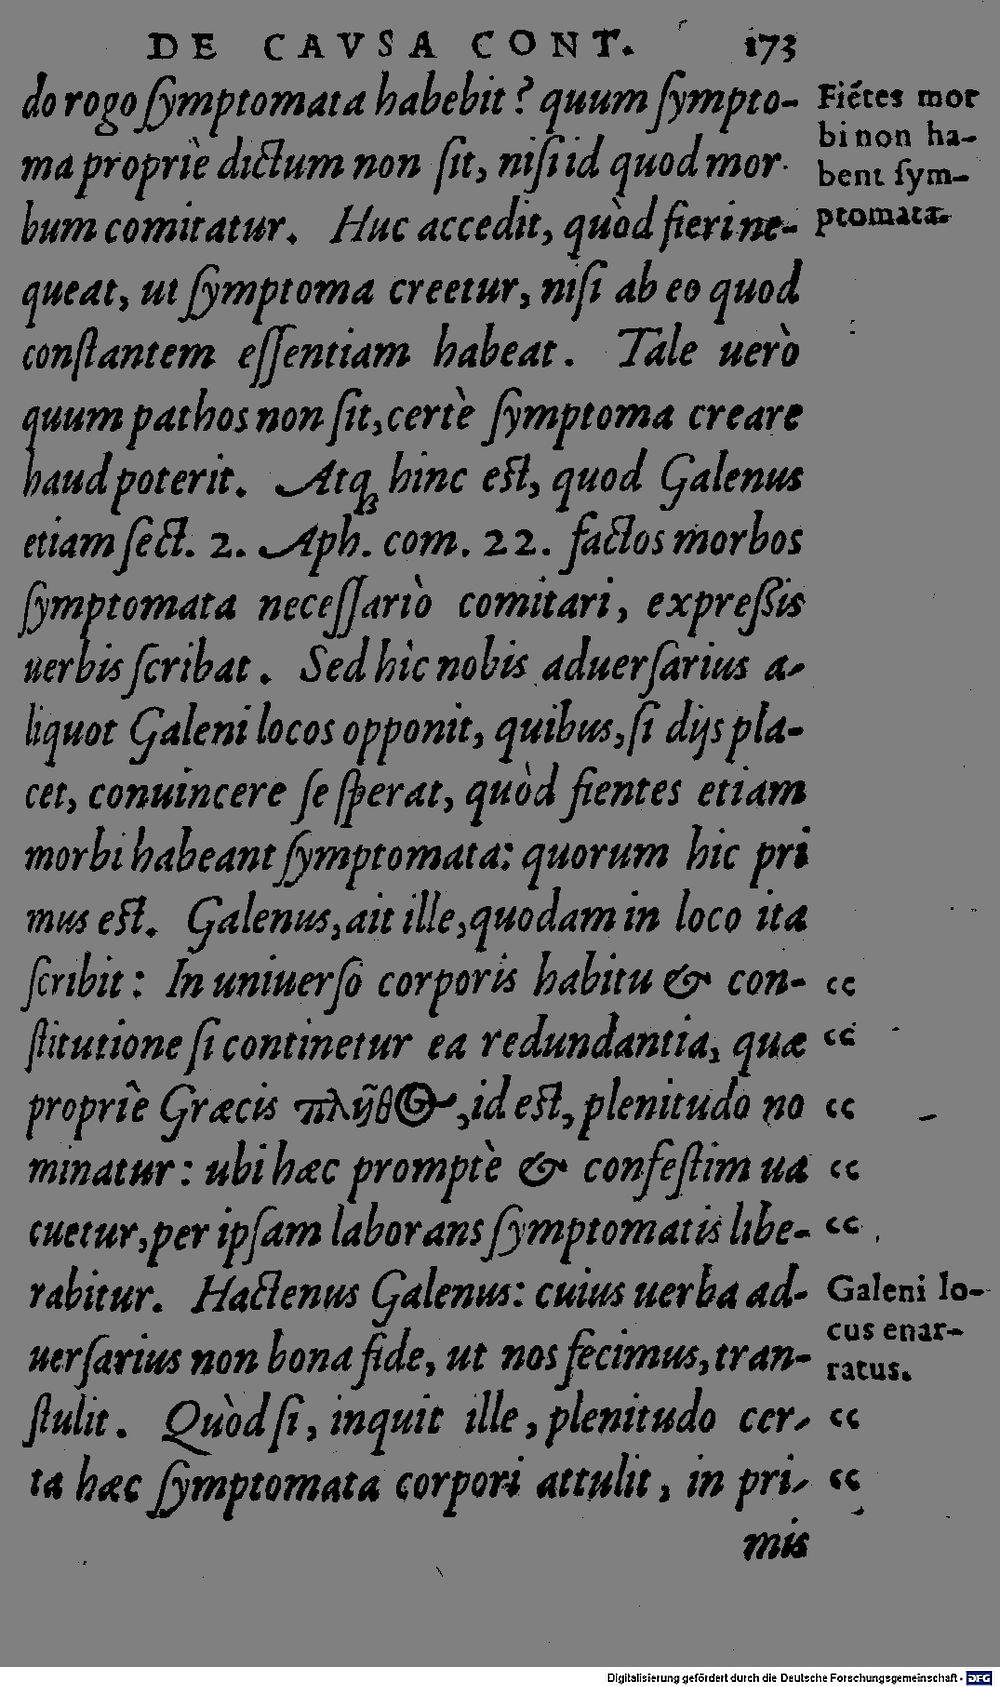 DE CAVSA CONT. 173
do rogo ſymptomata habebit? quum ſympto-
ma propriè dictum non ſit, niſi id quod mor
bum comitatur. Huc accedit, quòd fieri ne-
queat, ut ſymptoma creetur, niſi ab eo quod
conſtantem eſſentiam habeat. Tale uerò
quum pathos non ſit, certè ſymptoma creare
haud poterit. Atqꝫ hinc est, quod Galenus
etiam ſect. 2. Aph. com. 22. factos morbos
ſymptomata neceſſariò comitari, expreſsis
uerbis ſcribat. Sed hìc nobis aduerſarius a-
liquot Galeni locos opponit, quibus, ſi dijs pla-
cet, conuincere ſe ſperat, quòd fientes etiam
morbi habeant ſymptomata: quorum hic pri
mus est. Galenus, ait ille, quodam in loco ita
ſcribit: In uniuerſo corporis habitu & con-
ſtitutione ſi continetur ea redundantia, quæ
propriè Græcis πλῆθος, id est, plenitudo no
minatur: ubi hæc promptè & confeſtim ua
cuetur, per ipſam laborans ſymptomatis libe-
rabitur. Hactenus Galenus: cuius uerba ad-
uerſarius non bona fide, ut nos fecimus, tran-
ſtulit. Quòd ſi, inquit ille, plenitudo cer-
ta hæc ſymptomata corpori attulit, in pri-
mis
Fiẽtes mor
bi non ha-
bent ſym-
ptomata.
“
“
“
“
“
Galeni lo-
cus enar-
ratus.
“
“
Digitalisierung gefördert durch die Deutsche Forschungsgemeinschaft - DFG